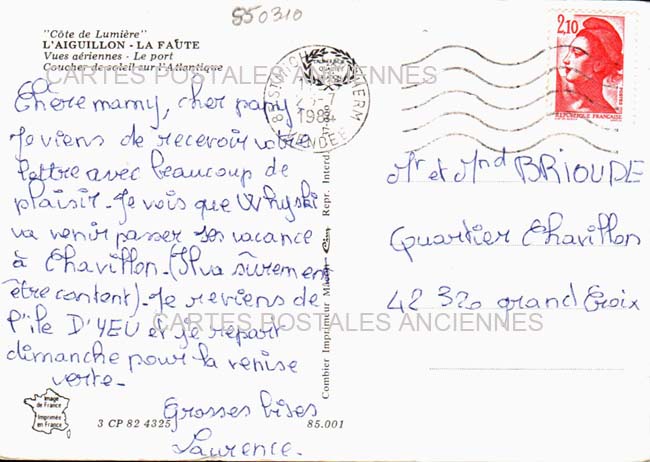 550310
"Côte de Lumière"
L'AIGUILLON - LA FAUTE
Vues aériennes - Le port
Coucher de soleil sur l'Atlantique
CARTES POSTALES ANCIENNES
Chère mamy, cher papy
Je viens de recevoir votre
lettre avec beaucoup de
plaisir. Je vois que Whyski
va venir passer ses vacance
à Chavillon. (Il va sûrement
être content). Je reviens de
l'île D'YEU et je repart
dimanche pour la venise
verte.
Grosses bises
Laurence.
CARTES POSTALES ANCIENNES
Image
de France
Imprimée
en France
3 CP 82 4325
85.001
Combier Imprimeur Mâcon
Repr. Interd.
1984
VENDEE
2,10
REPUBLIQUE FRANCAISE
Mr et Mnd BRIOUDE
Quartier Chavillon
42 320 grand Croix